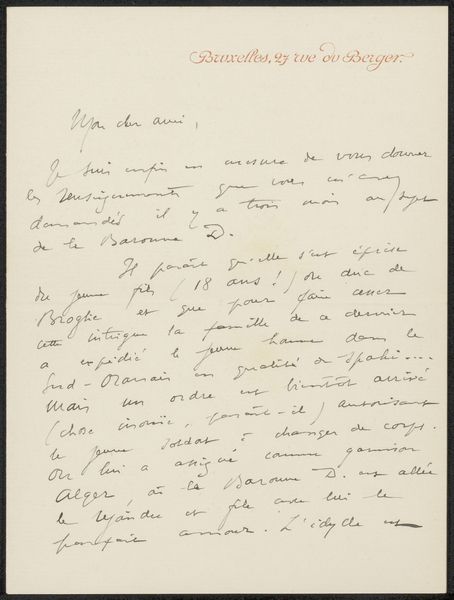 Bruxelles, 27 rue du Berger.
Mon cher ami,
Je suis enfin en mesure de vous donner
les renseignements que vous m'avez
demandés il y a trois mois au sujet
de la Baronne D.
Il paraît qu'elle s'est éprise
du jeune fils (18 ans!) du duc de
Broglie et que pour faire cesser
cette intrigue la famille de ce dernier
a expédié le jeune homme dans le
Sud-Oranais en qualité de spahi....
Mais un ordre est bientôt arrivé
(chose inouïe, paraît-il) autorisant
le jeune soldat à changer de corps.
On lui a assigné comme garnison
Alger, où la Baronne D. est allée
le rejoindre et file avec lui le
parfait amour. L'idylle est